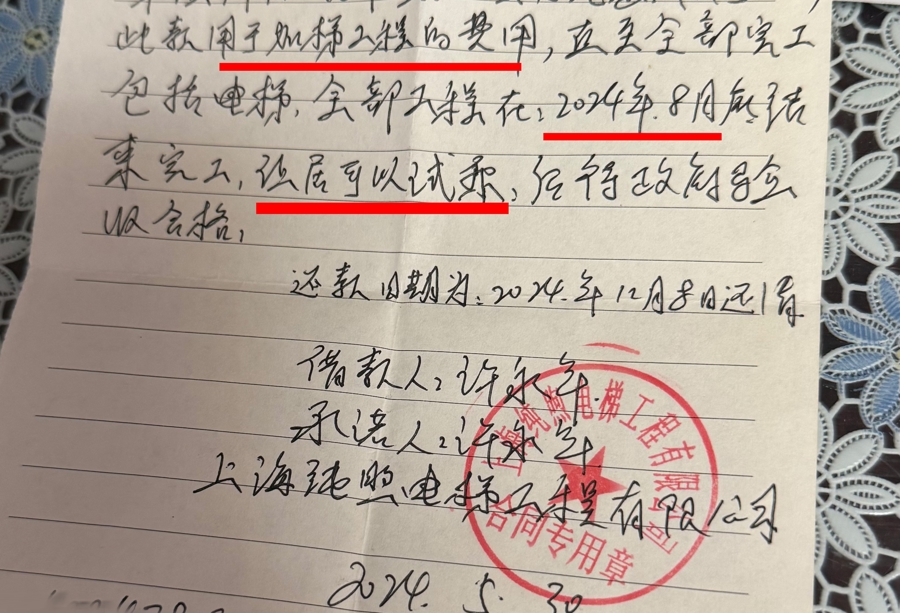 此款用于加梯工程的费用，直至全部完工
包括电梯，全部工程在：2024年.8月底结
束完工，让居可以试乘，后等待政府安全
收合格，
还款日期为：2024.年12月8日还清
借款人：许永年.
承诺人：许永年
上海纯照电梯工程有限公司
2024. 5. 30
上海纯照电梯工程有限公司
合同专用章